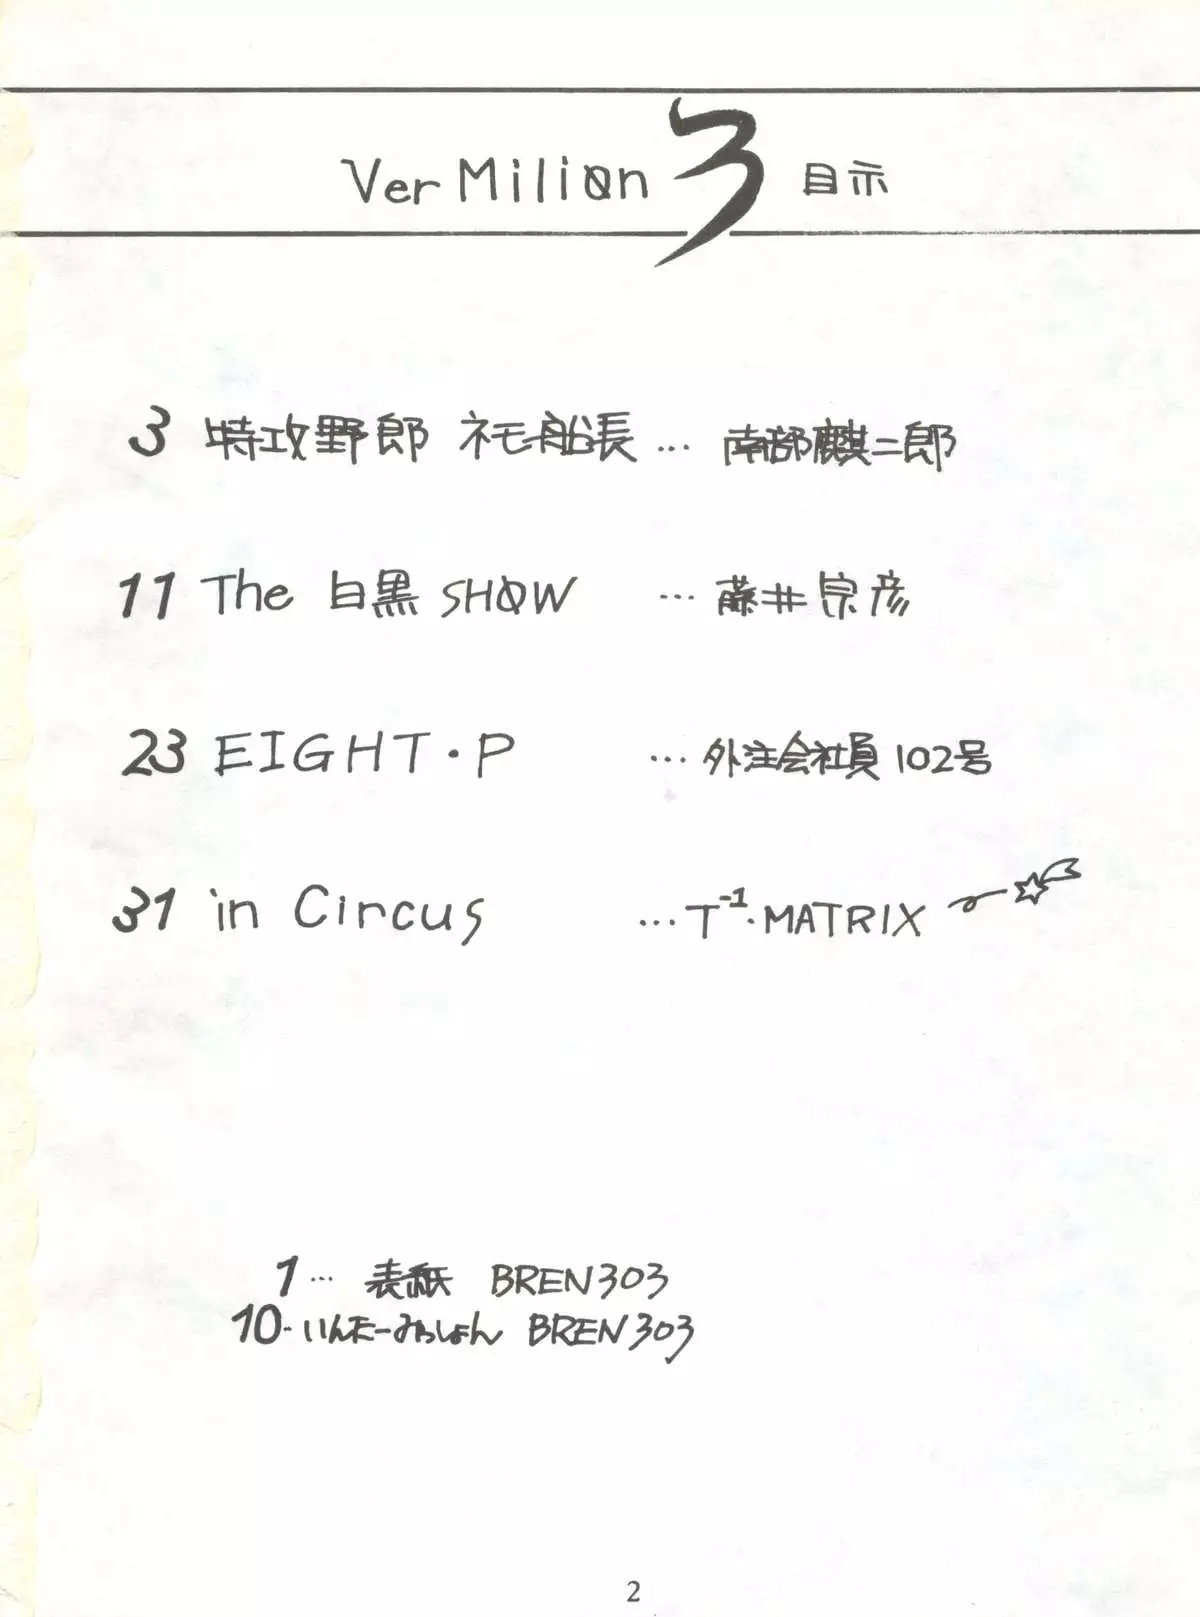 Ver Milion 3 目示
3 特攻野郎 ネモ船長 … 南部麒二郎
11 The 白黒 SHOW … 藤井宗彦
23 EIGHT・P … 外注会社員102号
31 in Circus … T⁻¹・MATRIX
1 … 表紙 BREN303
10 … いんたーみっしょん BREN303
2